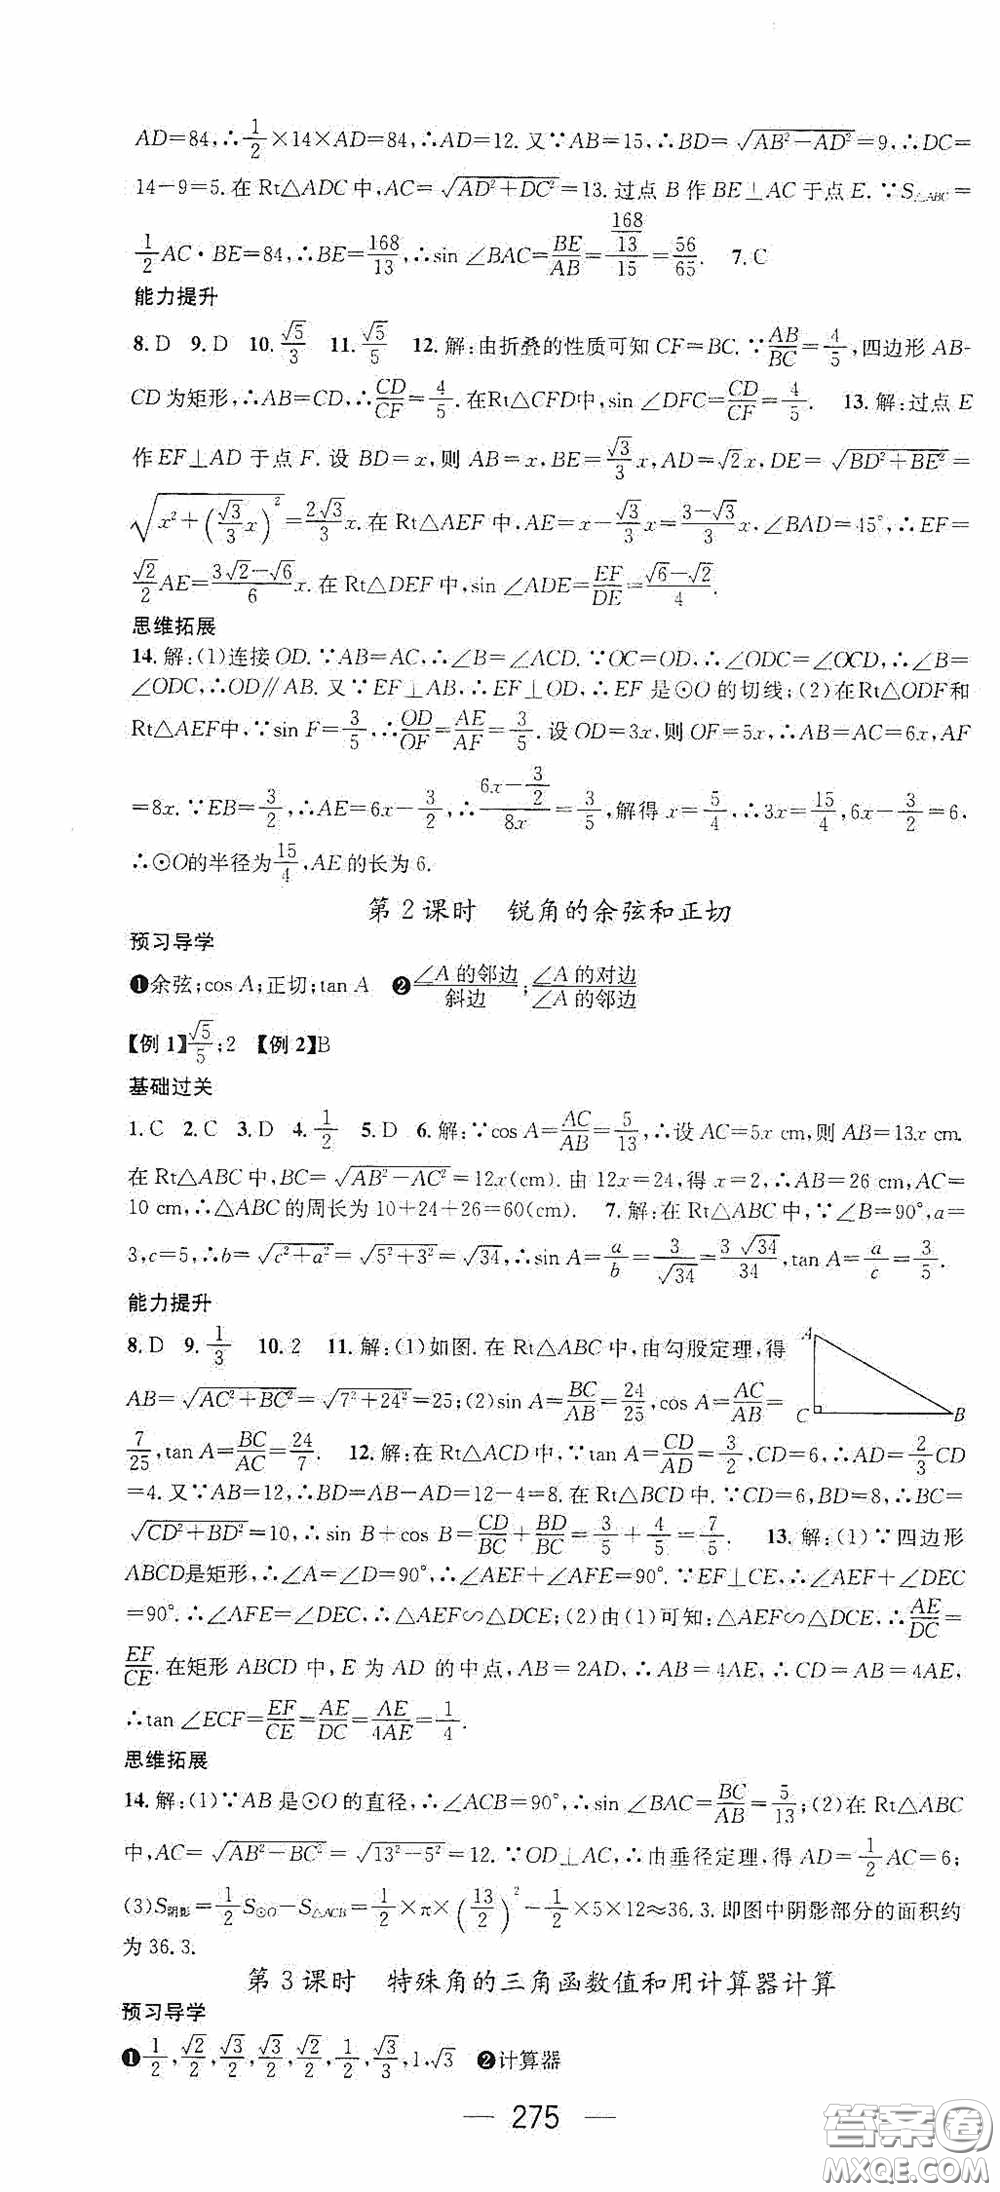 AD=84,∴1/2×14×AD=84,∴AD=12.又∵AB=15,∴BD=√(AB²-AD²)=9,∴DC=
14-9=5.在Rt△ADC中,AC=√(AD²+DC²)=13.过点B作BE⊥AC于点E.∵S△ABC=
1/2AC·BE=84,∴BE=168/13,∴sin∠BAC=BE/AB=(168/13)/15=56/65. 7.C
能力提升
8.D 9.D 10.√5/3 11.√5/5 12.解:由折叠的性质可知CF=BC.∵AB/BC=4/5,四边形AB-
CD为矩形,∴AB=CD,∴CD/CF=4/5.在Rt△CFD中,sin∠DFC=CD/CF=4/5. 13.解:过点E
作EF⊥AD于点F.设BD=x,则AB=x,BE=√3/3x,AD=√2x,DE=√(BD²+BE²)=
√(x²+(√3/3x)²)=2√3/3x.在Rt△AEF中,AE=x-√3/3x=(3-√3)/3x,∠BAD=45°,∴EF=
√2/2AE=(3√2-√6)/6x.在Rt△DEF中,sin∠ADE=EF/DE=(√6-√2)/4.
思维拓展
14.解:(1)连接OD.∵AB=AC,∴∠B=∠ACD.∵OC=OD,∴∠ODC=∠OCD,∴∠B=
∠ODC,∴OD∥AB.又∵EF⊥AB,∴EF⊥OD,∴EF是⊙O的切线;(2)在Rt△ODF和
Rt△AEF中,∵sin F=3/5,∴OD/OF=AE/AF=3/5.设OD=3x,则OF=5x,∴AB=AC=6x,AF
=8x.∵EB=3/2,∴AE=6x-3/2,∴(6x-3/2)/8x=3/5,解得x=5/4,∴3x=15/4,6x-3/2=6.
∴⊙O的半径为15/4,AE的长为6.
第2课时 锐角的余弦和正切
预习导学
❶余弦;cos A;正切;tan A ❷∠A的邻边/斜边;∠A的对边/∠A的邻边
【例1】√5/5;2 【例2】B
基础过关
1.C 2.C 3.D 4.1/2 5.D 6.解:∵cos A=AC/AB=5/13,∴设AC=5x cm,则AB=13x cm.
在Rt△ABC中,BC=√(AB²-AC²)=12x(cm).由12x=24,得x=2,∴AB=26 cm,AC=
10 cm,∴△ABC的周长为10+24+26=60(cm). 7.解:在Rt△ABC中,∵∠B=90°,a=
3,c=5,∴b=√(c²+a²)=√(5²+3²)=√34,∴sin A=a/b=3/√34=3√34/34,tan A=a/c=3/5.
能力提升
8.D 9.1/3 10.2 11.解:(1)如图.在Rt△ABC中,由勾股定理,得
AB=√(AC²+BC²)=√(7²+24²)=25;(2)sin A=BC/AB=24/25,cos A=AC/AB=
A
C
B
7/25,tan A=BC/AC=24/7. 12.解:在Rt△ACD中,∵tan A=CD/AD=3/2,CD=6,∴AD=2/3CD
=4.又∵AB=12,∴BD=AB-AD=12-4=8.在Rt△BCD中.∵CD=6,BD=8,∴BC=
√(CD²+BD²)=10,∴sin B+cos B=CD/BC+BD/BC=3/5+4/5=7/5. 13.解:(1)∵四边形
ABCD是矩形,∴∠A=∠D=90°,∴∠AEF+∠AFE=90°.∵EF⊥CE,∴∠AEF+∠DEC
=90°.∴∠AFE=∠DEC,∴△AEF∽△DCE;(2)由(1)可知:△AEF∽△DCE,∴AE/DC=
EF/CE.在矩形ABCD中,E为AD的中点,AB=2AD,∴AB=4AE,∴CD=AB=4AE,
∴tan∠ECF=EF/CE=AE/DC=AE/4AE=1/4.
思维拓展
14.解:(1)∵AB是⊙O的直径,∴∠ACB=90°,∴sin∠BAC=BC/AB=5/13;(2)在Rt△ABC
中,AC=√(AB²-BC²)=√(13²-5²)=12.∵OD⊥AC,∴由垂径定理,得AD=1/2AC=6;
(3)S阴影=1/2S⊙O-S△ACB=1/2×π×(13/2)²-1/2×5×12≈36.3.即图中阴影部分的面积约
为36.3.
第3课时 特殊角的三角函数值和用计算器计算
预习导学
❶1/2,√2/2,√3/2,√3/2,√2/2,1/2,√3/3,1,√3 ❷计算器
— 275 —
答案卷
MXQE.COM